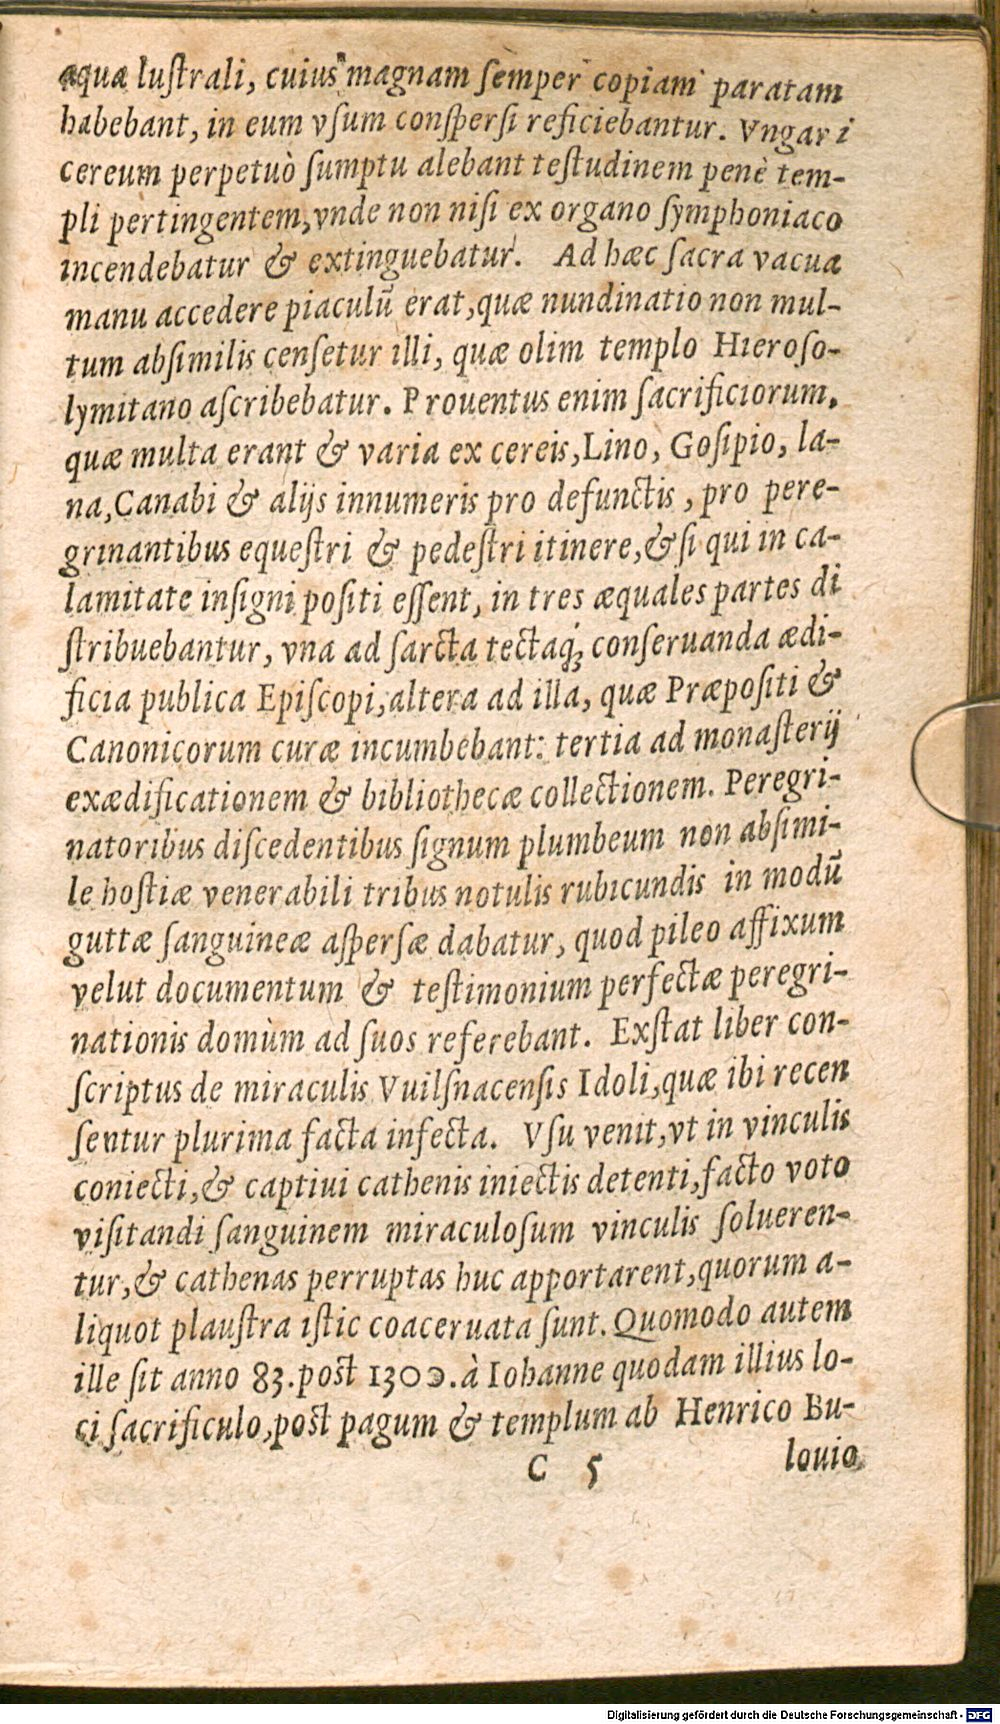 aquæ luſtrali, cuius magnam ſemper copiam paratam
habebant, in eum vſum conſperſi reficiebantur. Vngari
cereum perpetuò ſumptu alebant teſtudinem penè tem-
pli pertingentem, vnde non niſi ex organo ſymphoniaco
incendebatur & extinguebatur. Ad hæc ſacra vacua
manu accedere piaculū erat, quæ nundinatio non mul-
tum abſimilis cenſetur illi, quæ olim templo Hieroſo-
lymitano aſcribebatur. Prouentus enim ſacrificiorum,
quæ multa erant & varia ex cereis, Lino, Goſipio, la-
na, Canabi & alijs innumeris pro defunctis, pro pere-
grinantibus equeſtri & pedeſtri itinere, & ſi qui in ca-
lamitate inſigni poſiti eſſent, in tres æquales partes di
ſtribuebantur, vna ad ſarcta tectaq́; conſeruanda ædi-
ficia publica Epiſcopi, altera ad illa, quæ Præpoſiti &
Canonicorum curæ incumbebant: tertia ad monaſterij
exædificationem & bibliothecæ collectionem. Peregri-
natoribus diſcedentibus ſignum plumbeum non abſimi-
le hoſtiæ venerabili tribus notulis rubicundis in modū
guttæ ſanguineæ aſperſæ dabatur, quod pileo affixum
velut documentum & teſtimonium perfectæ peregri-
nationis domùm ad ſuos referebant. Exſtat liber con-
ſcriptus de miraculis Vuilſnacenſis Idoli, quæ ibi recen
ſentur plurima facta infecta. Vſu venit, vt in vinculis
coniecti, & captiui cathenis iniectis detenti, facto voto
viſitandi ſanguinem miraculoſum vinculis ſolueren-
tur, & cathenas perruptas huc apportarent, quorum a-
liquot plauſtra iſtic coaceruata ſunt. Quomodo autem
ille ſit anno 83. poſt 1300. à Iohanne quodam illius lo-
ci ſacrificulo, poſt pagum & templum ab Henrico Bu-
C 5 louio
Digitalisierung gefördert durch die Deutsche Forschungsgemeinschaft - DFG